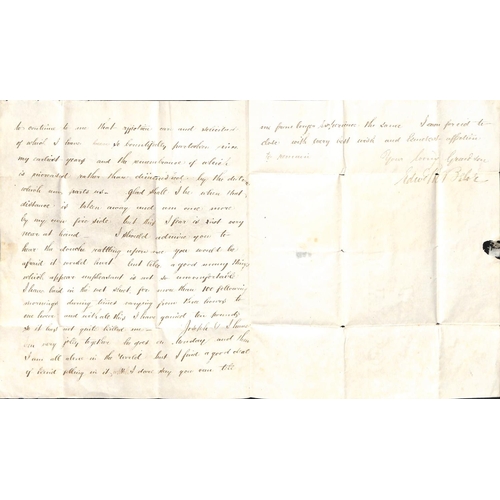 to continue to me that affection and
of which I have been so bountifully partaken since
my earliest years and the remembrance of which
is increased rather than diminished by the distance
which now parts us – Glad shall I be when that
distance is taken away and we are once more
by my own fire side, but this I fear is not very
near at hand – I should admire you to
hear the rattling upon you would be
afraid it would hurt but like a good many things
which appear unpleasant is not so uncomfortable
I have laid in the wet sheet for more than 100 following
mornings during times varying from two hours to
one hour and with all this I have gained ten pounds
so it has not quite killed me – Joseph & I have
very jolly together he goes on Monday and then
I am all alone in the world but I find a good deal
of in it, & I dare say you can tell
me from the same I am forced to
close with very best wish and affection
to remain
Your loving Grandson
Edward